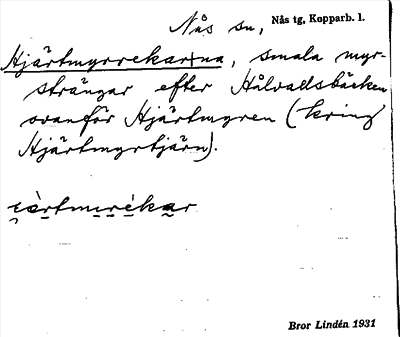 Nås sn, Nås tg, Kopparb. l.
Hjärtmyrrekarna, smala myr-
strängar efter Hålvadsbäcken
ovanför Hjärtmyren (kring
Hjärtmyrtjärn).
Bror Lindén 1931